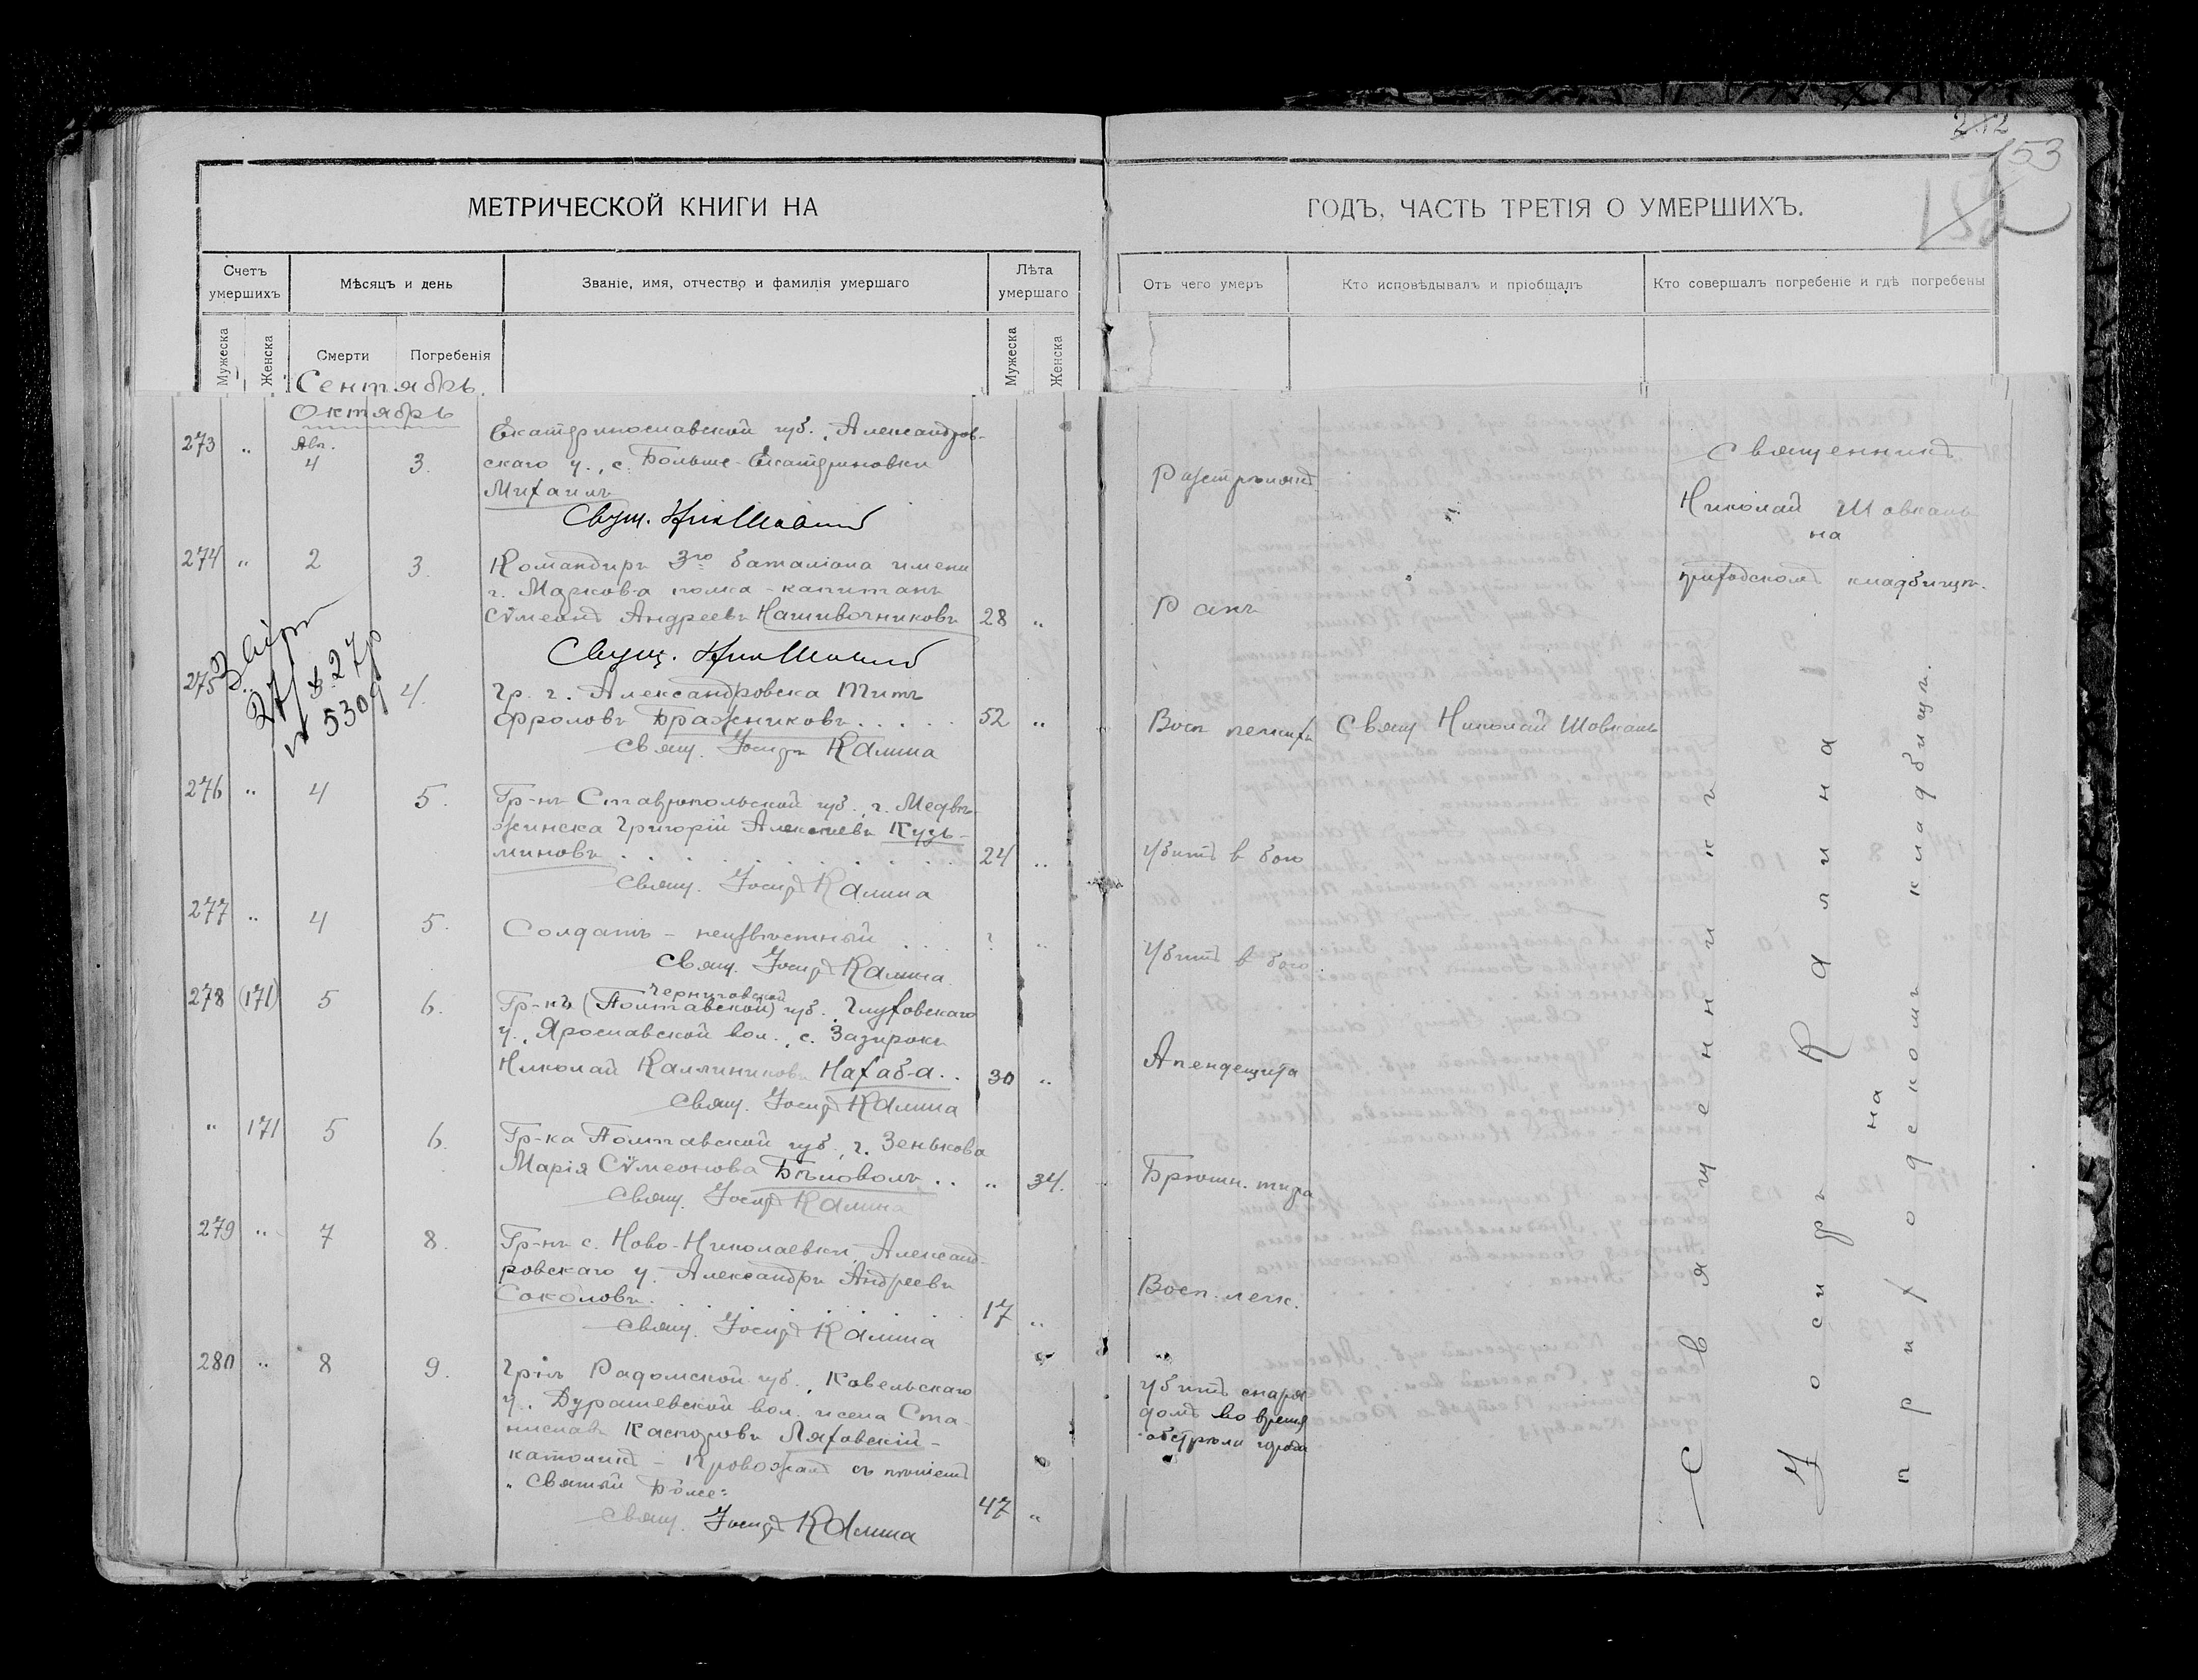 212
153
152
МЕТРИЧЕСКОЙ КНИГИ НА
ГОДЪ, ЧАСТЬ ТРЕТІЯ О УМЕРШИХЪ.
Счетъ умершихъ
Мѣсяцъ и день
Званіе, имя, отчество и фамилія умершаго
Лѣта умершаго
Отъ чего умеръ
Кто исповѣдывалъ и пріобщалъ
Кто совершалъ погребеніе и гдѣ погребены
Мужеска
Женска
Смерти
Погребенія
Мужеска
Женска
Сентябрь.
Октябрь
273 " Авг. 4 3. Екатеринославской губ., Александров-
скаго у., с. Больше-Екатериновки
Михаилъ
Растрѣлянъ "
Свящ. Ник Шовкань
Священникъ
Николай Шовкань
на
приходскомъ кладбищѣ.
274 " 2 3. Командиръ 3го баталіона имени
г. Маркова полка - капитанъ
Сѵмеонъ Андреевъ Нашивочниковъ 28 "
Ранъ
Свящ. Ник Шовкань
275 " 4. Гр. г. Александровска Титъ
Фроловъ Бражниковъ 52 "
Восп легкихъ Свящ Николай Шовкань
№ 5309
Свящ. Іосифъ Калина
276 " 4 5. Гр-нъ Ставропольской губ., г. Медвѣ-
жинска Григорій Алексіевъ Кузь-
миновъ 24 "
Убитъ в бою
Свящ. Іосифъ Калина
277 " 4 5. Солдатъ - неизвѣстный ? "
Убитъ в бою.
Свящ. Іосифъ Калина
Черниговской
278 (171) 5 6. Гр-нъ (Полтавской) губ. Глуховскаго
у., Ярославской вол., с. Зазирокъ
Николай Каллиниковъ Нахаб-а 30 "
Апендецита
Свящ. Іосифъ Калина
" 171 5 6. Гр-ка Полтавской губ., г. Зенькова
Марія Сѵмеонова Бѣловолъ " 34.
Брюшн. тифа
Свящ. Іосифъ Калина
279 " 7 8. Гр-нъ с. Ново-Николаевки, Александ-
ровскаго у. Александръ Андреевъ
Соколовъ 17 "
Восп. легк.
Свящ. Іосифъ Калина
280 " 8 9. Гр-нъ Радомской губ., Ковельскаго
у. вол. Ста-
ниславъ Касперовъ Ляховскій -
католикъ - Провожалъ съ пѣніемъ
"Святый Боже"
47 "
Убитъ снаря
домъ во время
обстрѣла города
Свящ. Іосифъ Калина
Священникъ
Іосифъ Калина
на
приходскомъ кладбищѣ.